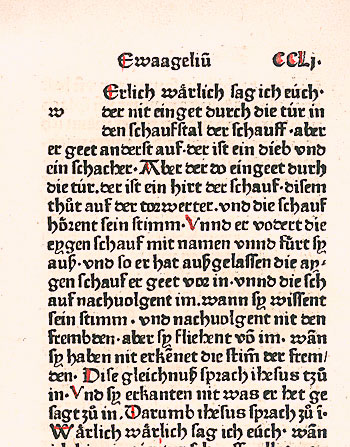 Ewaageliū CCLj.
Erlich wårlich sag ich eüch·
w der nit einget durch die tür in
den schaufstal der schauff·aber
er geet anderst auf·der ist ein dieb vnd
ein schacher·Aber der do eingeet durh
die tür.der ist ein hirt der schauf·disem
thůt auf der torwerter·vnd die schauf
hörent sein stimm·Vnnd er vodert die
eygen schauf mit namen vnnd fürt sy
auß·vnd so er hat außgelassen die ay⸗
gen schauf er geet vor in·vnnd die sch
auf nachuolgent im.wann sy wissent
sein stimm·vnd nachuolgent nit den
frembden·aber sy fliehent võ im·wān
sy haben nit erkēnet die stim̄ der frem/
den·Dise gleichnuß sprach ihesus tzů
in·Vnd sy erkanten nit was er het ge
sagt zů in·Darumb ihesus sprach zů ī·
Wårlich wårlich sag ich eüch·wān